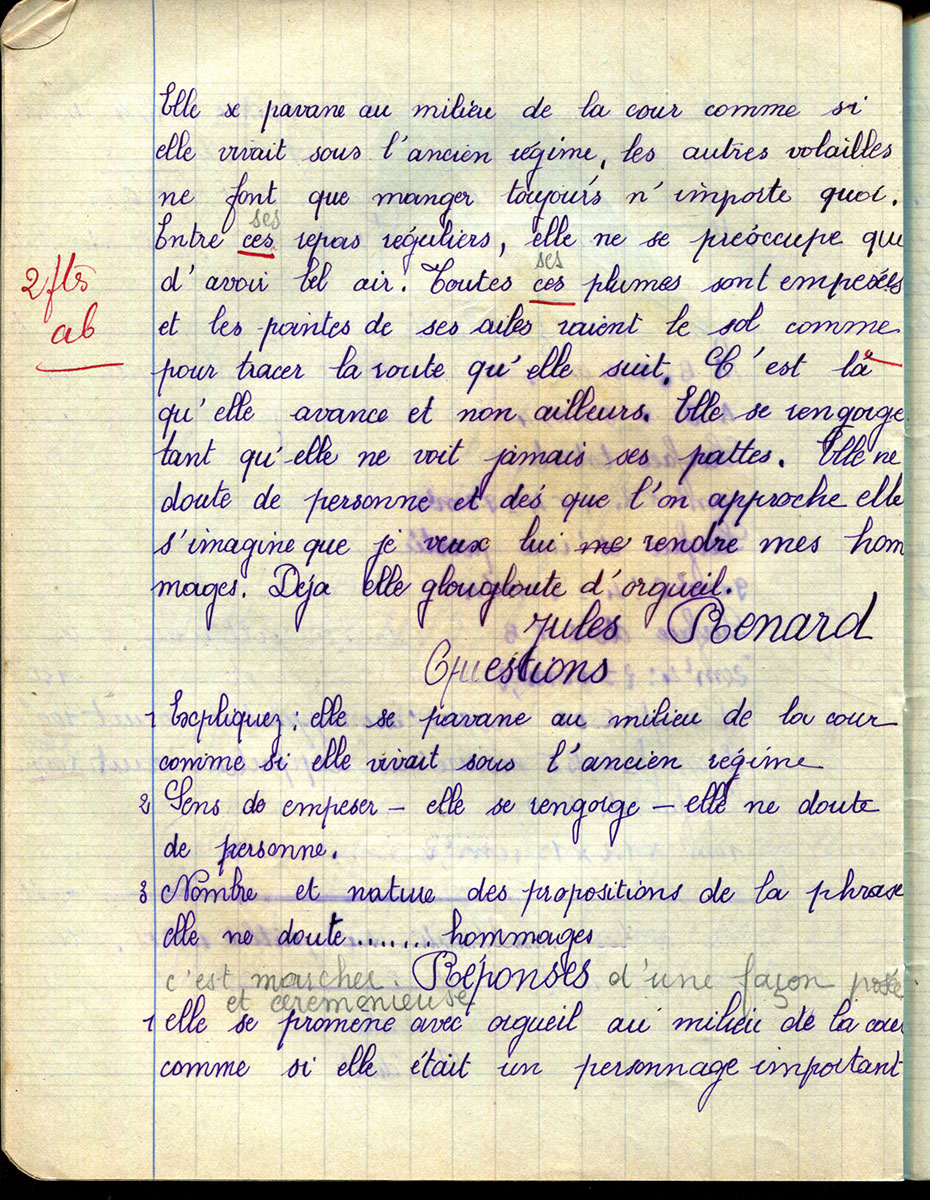 Elle se pavane au milieu de la cour comme si
elle vivait sous l'ancien régime, les autres volailles
ne font que manger toujours n'importe quoi.
ses
Entre ces repas réguliers, elle ne se preóccupe que
ses
d'avoir bel air. Toutes ces plumes sont empesées
2 fts
ab
et les pointes de ses ailes raient le sol comme
pour tracer la route qu'elle suit. C'est là
qu'elle avance et non ailleurs. Elle se rengorge
tant qu'elle ne voit jamais ses pattes. Elle ne
doute de personne et dés que l'on approche elle
s'imagine que je veux lui me rendre mes hom
mages. Déja elle glougloute d'orgueil.
Jules Renard
Questions
1 Expliquez: elle se pavane au milieu de la cour
comme si elle vivait sous l'ancien régime
2 Sens de empeser – elle se rengorge – elle ne doute
de personne.
3 Nombre et nature des propositions de la phrase
elle ne doute........ hommages
c'est marcher. Réponses d'une façon posée
et ceremonieuse
1 elle se promène avec orgueil au milieu de la cour
comme si elle était un personnage important